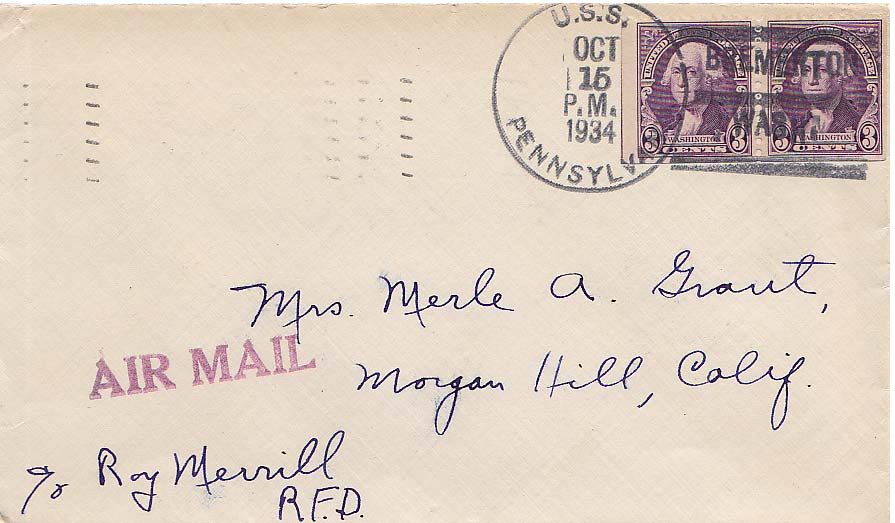 U.S.S.
OCT
15
P.M.
1934
PENNSYLV
BREMERTON
WASH.
UNITED STATES POSTAGE
3 WASHINGTON 3
CENTS
WASHINGTON 3
CENTS
Mrs. Merle A. Grant,
AIR MAIL
Morgan Hill, Calif.
c/o Roy Merrill
R.F.D.